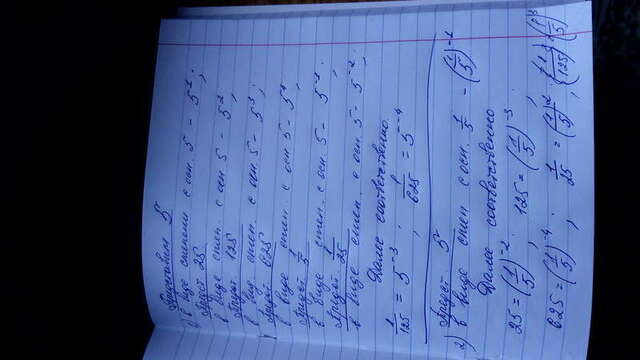 Представим 5
1) в виде степени с осн. 5 – 5¹;
Предст 25
в виде степ. с осн 5 – 5²;
Предст 125
в вид степ. с осн. 5 – 5³;
Предст 625
в виде степ. с осн 5 – 5⁴;
Предст 1/5
в виде степ. с осн. 5 – 5⁻¹;
Предст 1/25
в виде степ. с осн. 5 – 5⁻²;
Далее соответственно.
1/125 = 5⁻³; 1/625 = 5⁻⁴
Предст. 5
2) в виде степ с осн. 1/5 – (1/5)⁻¹
Далее соответственно
25 = (1/5)⁻²; 125 = (1/5)⁻³.
625 = (1/5)⁻⁴; 1/25 = (1/5)²;